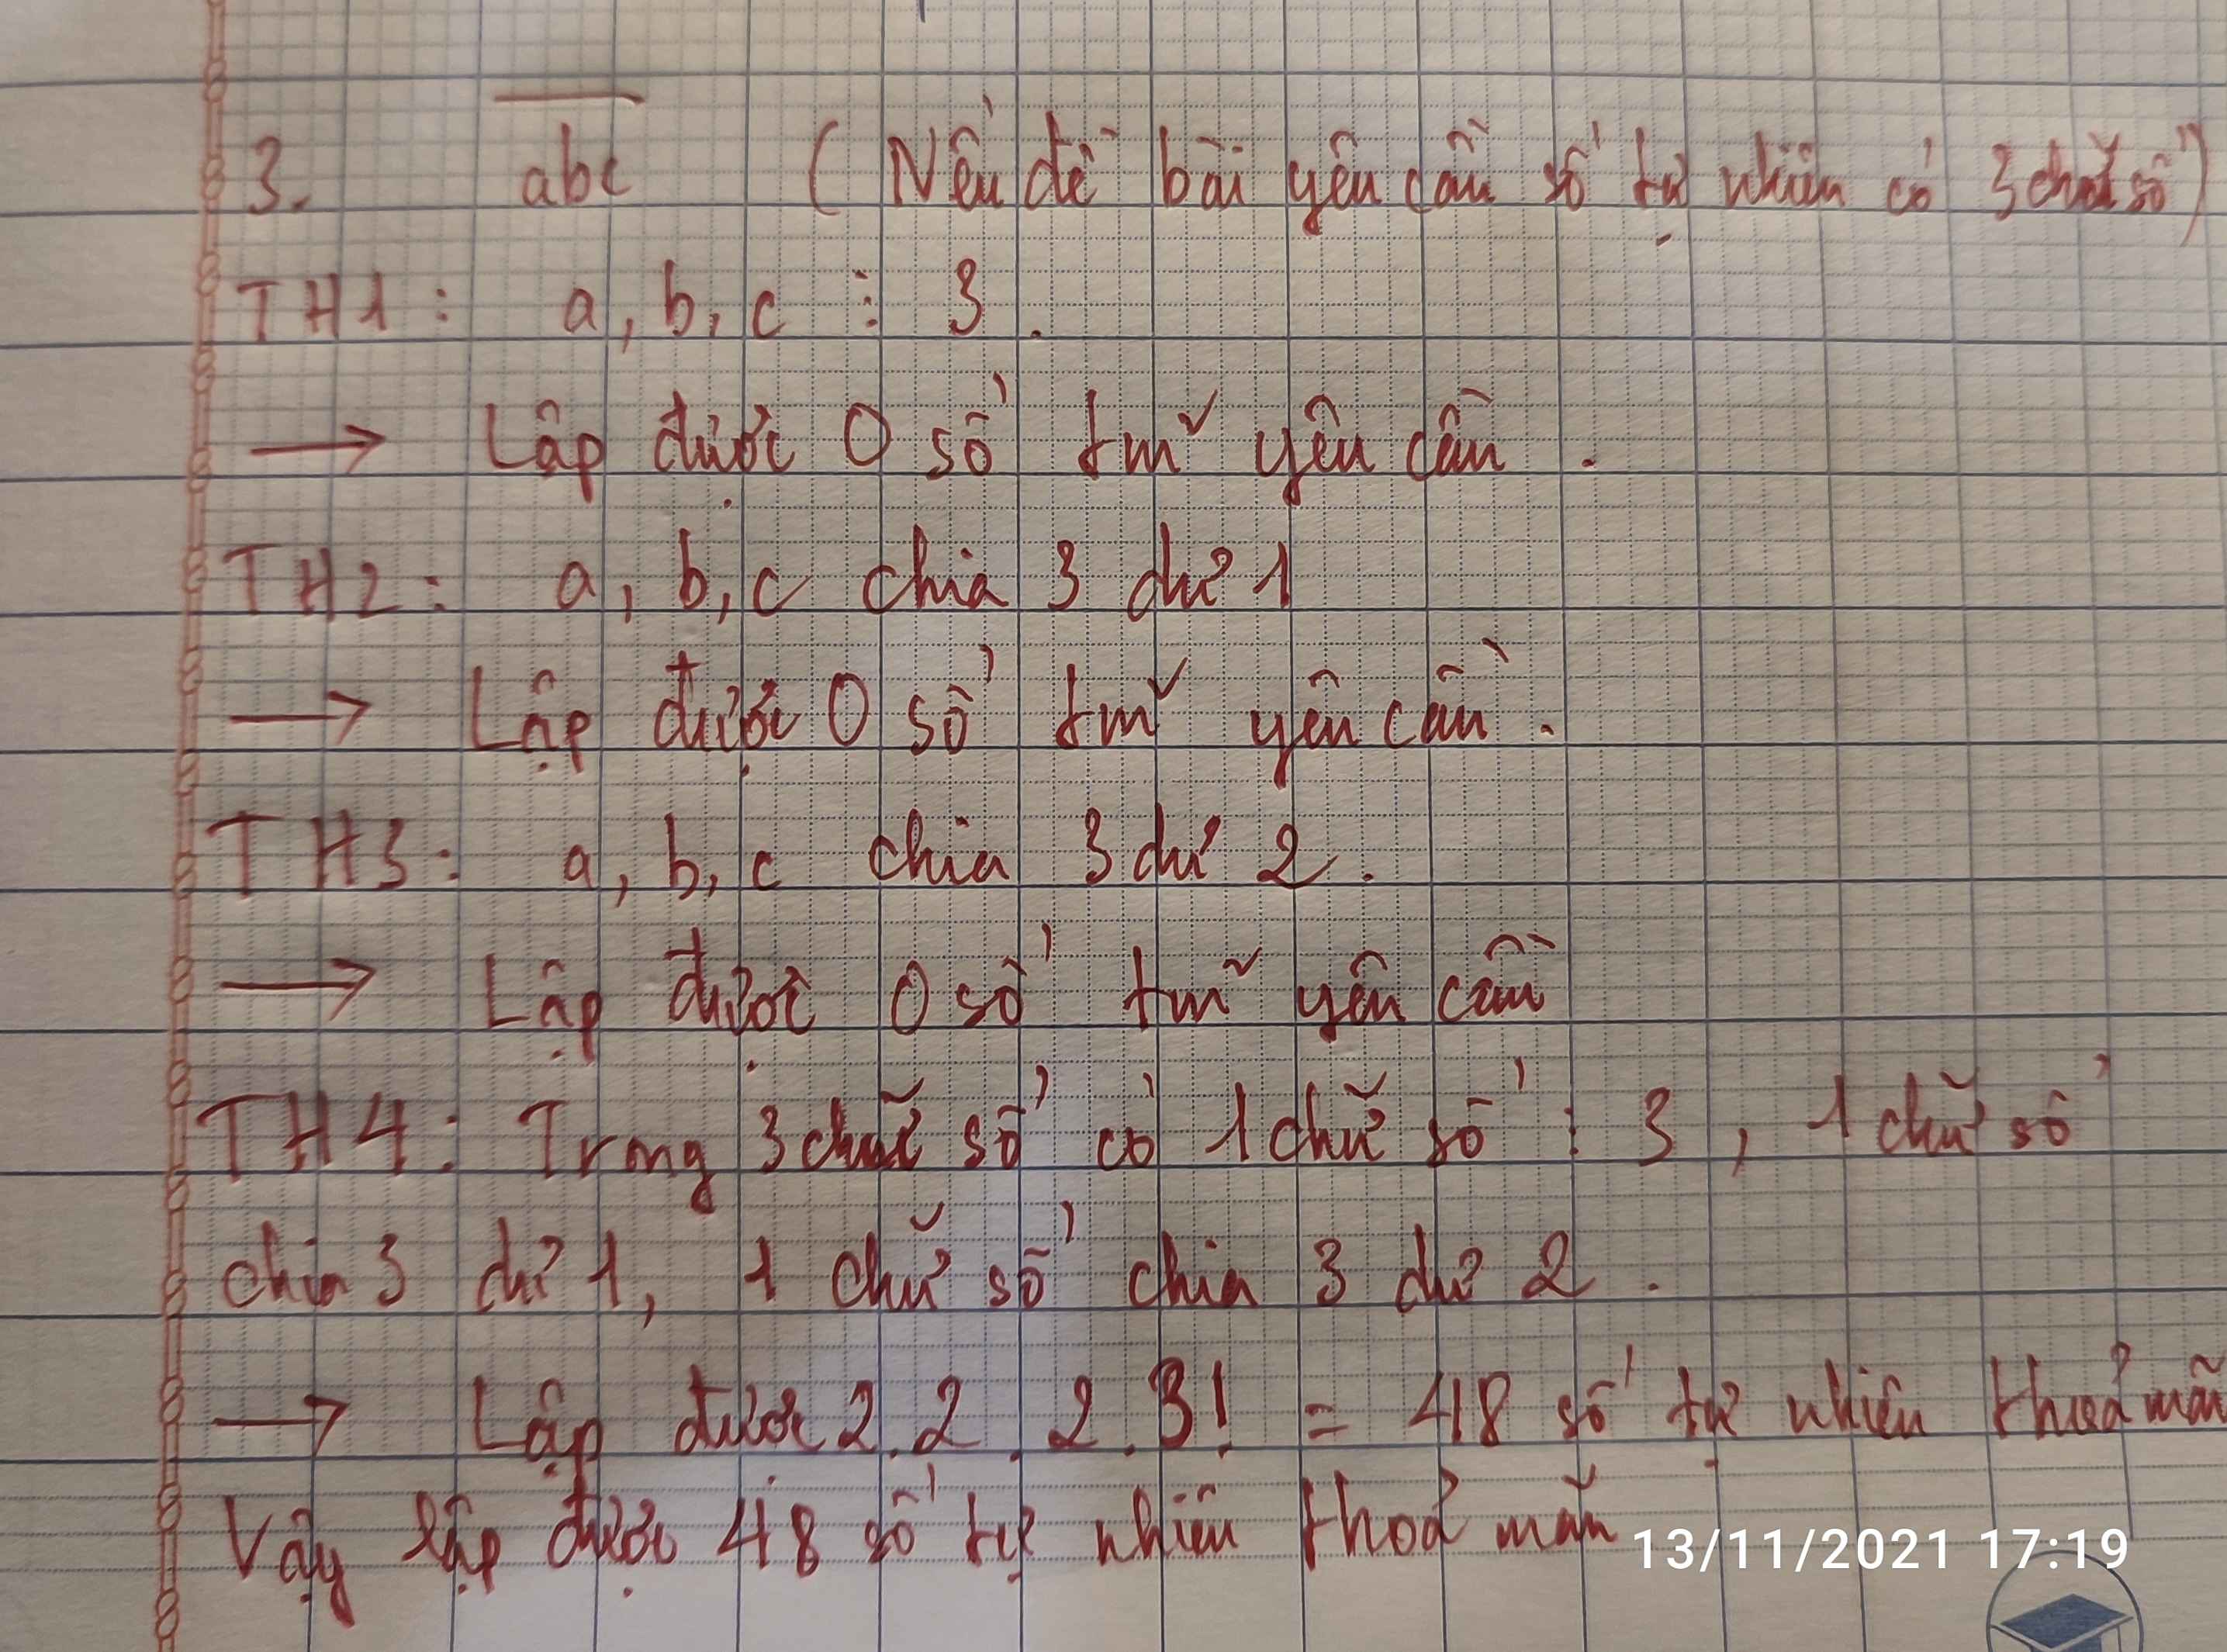 3. abc (Nếu đề bài yêu cầu số tự nhiên có 3 chữ số)
TH1: a, b, c ⋮ 3.
→ Lập được 0 số tm~ yêu cầu.
TH2: a, b, c chia 3 dư 1
→ Lập được 0 số tm~ yêu cầu.
TH3: a, b, c chia 3 dư 2.
→ Lập được 0 số tm~ yêu cầu
TH4: Trong 3 chữ số có 1 chữ số ⋮ 3, 1 chữ số
chia 3 dư 1, 1 chữ số chia 3 dư 2.
→ Lập được 2.2.2.3! = 48 số tự nhiên thoả mãn
Vậy lập được 48 số tự nhiên thoả mãn
13/11/2021 17:19